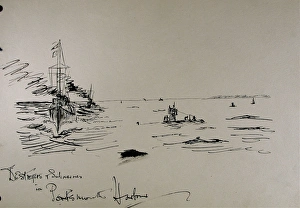 Destroyers & Submarines
in Portsmouth Harbour